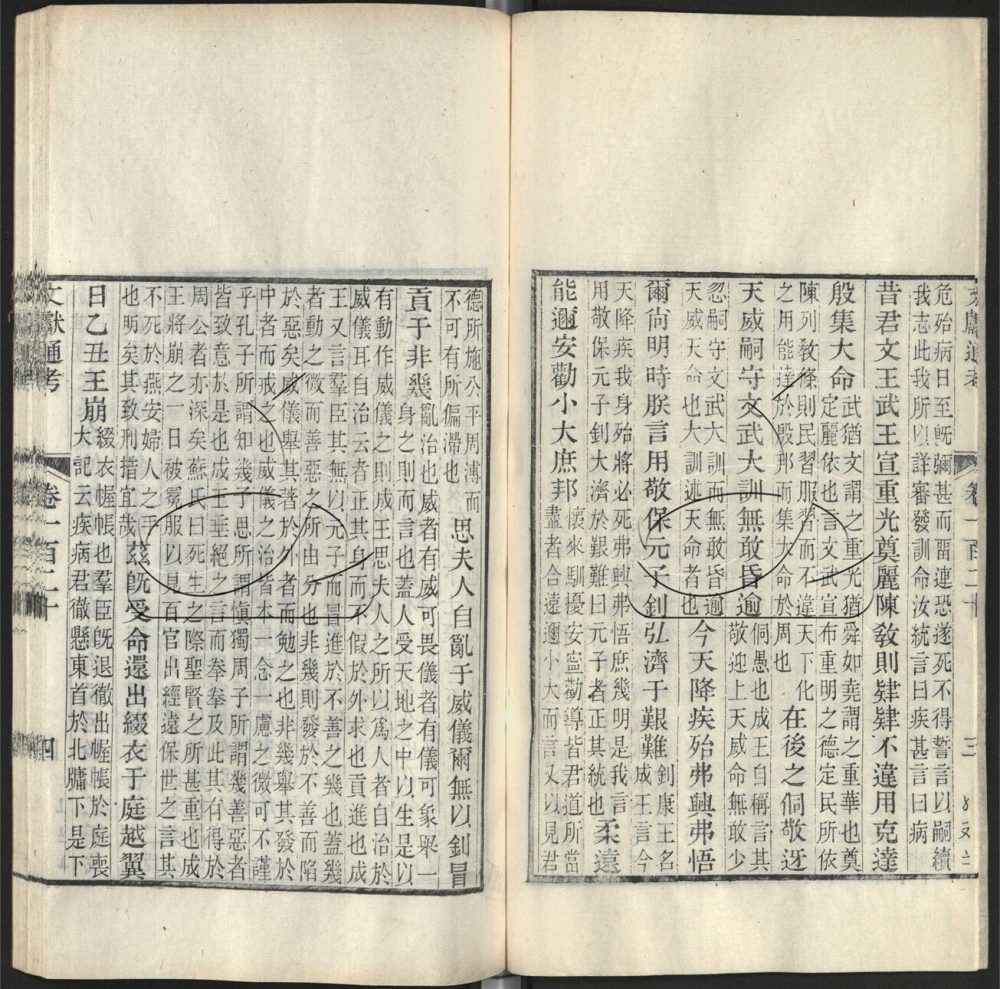 文獻通考 卷一百二十 三
危殆病日至旣彌甚而畱連恐遂死不得誓言以嗣續
我志此我所以詳審發訓命汝統言曰疾甚言曰病
昔君文王武王宣重光奠麗陳敎則肄肄不違用克達
殷集大命
武猶文謂之重光猶舜如堯謂之重華也奠
定麗依也言文武宣布重明之德定民所依
陳列敎條則民習服習而不違天下化
之用能達於殷邦而集大命於周也
在後之侗敬迓
天威嗣守文武大訓無敢昏逾
侗愚也成王自稱言其
敬迎上天威命無敢少
忽嗣守文武大訓而無敢昏逾
天威天命也大訓述天命者也
今天降疾殆弗興弗悟
爾尙明時朕言用敬保元子釗弘濟于艱難
釗康王名
成王言今
天降疾我身殆將必死弗興弗悟庶幾明是我言
用敬保元子釗大濟於艱難曰元子者正其統也
柔遠
能邇安勸小大庶邦
懷來馴擾安寧勸導皆君道所當
盡者合遠邇小大而言又以見君
德所施公平周溥而
不可有所偏滯也
思夫人自亂于威儀爾無以釗冒
貢于非幾
亂治也威者有威可畏儀者有儀可象舉一
身之則而言也蓋人受天地之中以生是以
有動作威儀之則成王思夫人之所以爲人者自治於
威儀耳自治云者正其身而不假於外求也貢進也成
王又言羣臣其無以元子而冒進於不善之幾也蓋幾
者動之微而善惡之所由分也非幾則發於不善而陷
於惡矣威儀舉其著於外者而勉之也非幾舉其發於
中者而戒之也威儀之治皆本一念一慮之微可不謹
乎孔子所謂知幾子思所謂愼獨周子所謂幾善惡者
皆致意於是也成王垂絕之言而拳拳及此其有得於
周公者亦深矣蘇氏曰死生之際聖賢之所甚重也成
王將崩之一日被冕服以見百官出經遠保世之言其
不死於燕安婦人之手
也明矣其致刑措宜哉
茲旣受命還出綴衣于庭越翼
日乙丑王崩
綴衣幄帳也羣臣旣退徹出幄帳於庭喪
大記云疾病君徹懸東首於北牖下是下
文獻通考 卷一百二十 四